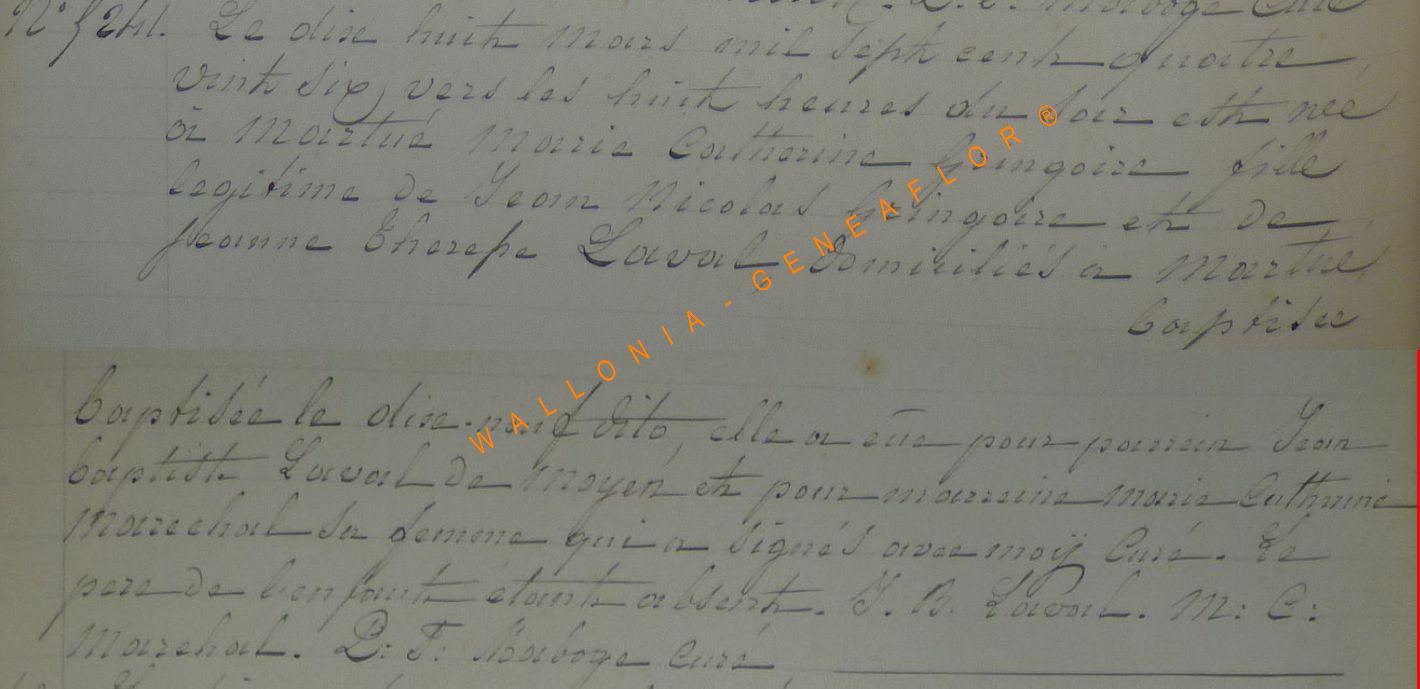 D. F. Maboge Curé
N° 241. Le dix huit mars mil sept cent quatre
vint six, vers les huit heures du soir est née
à Martué Marie Catherine Gringoire fille
legitime de Jean Nicolas Gringoire et de
Jeanne Therese Laval domiciliés a Martué
baptisée
baptisée le dix-neuf dito, elle a eue pour parrain Jean
baptiste Laval de Moyen et pour marreine marie Catherine
Marechal sa femme qui a signés avec moÿ Curé. Le
pere de l'enfant étant absent. J. B. Laval. M: C:
Marchal. D: F: Maboge Curé
WALLONIA - GENEAFLOR ®